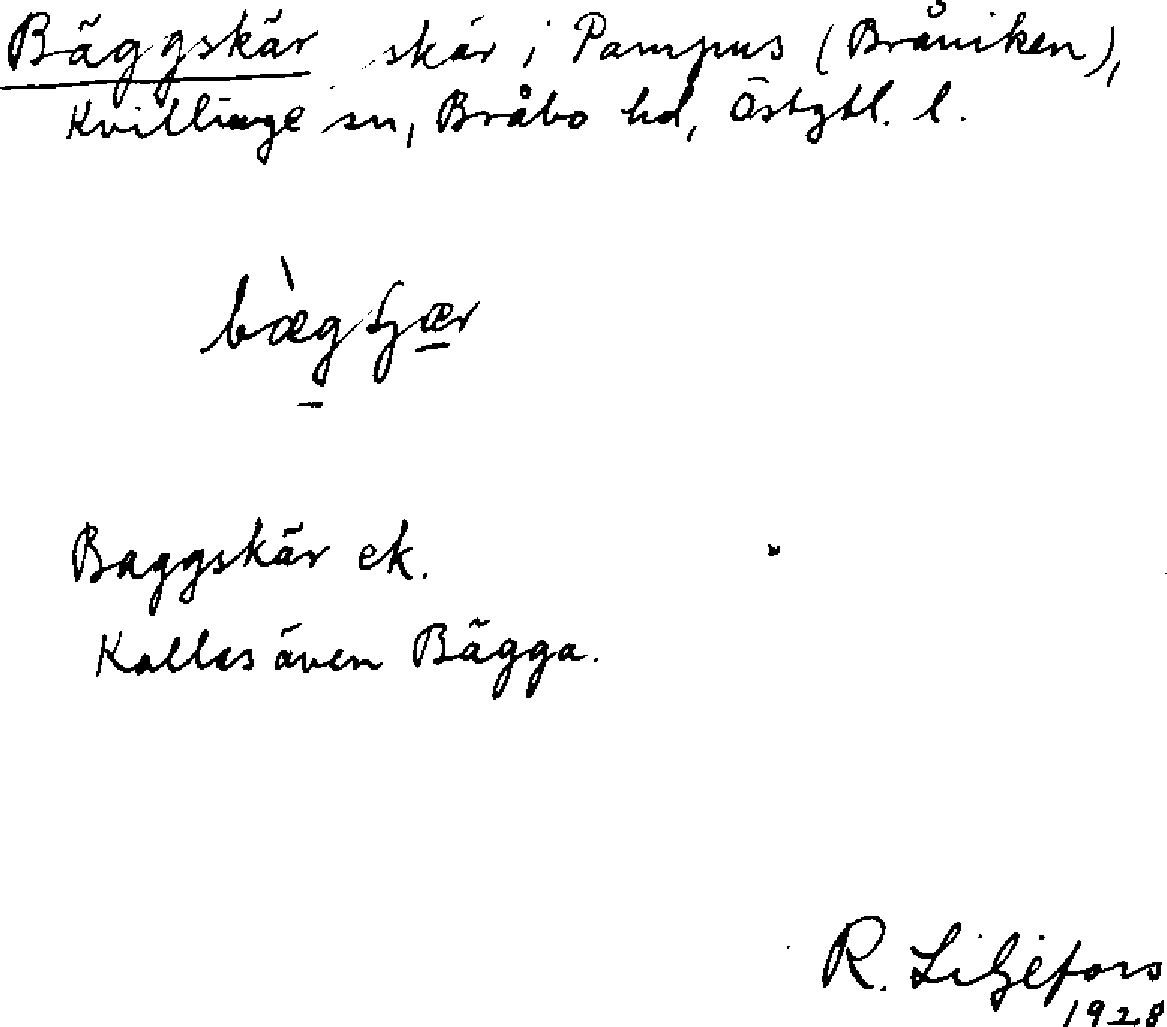 Bäggskär skär i Pampus (Bråviken),
Kvillinge sn, Bråbo hd, Östgtl. l.
Baggskär ek.
Kallas även Bägga.
R. Liljefors
1928